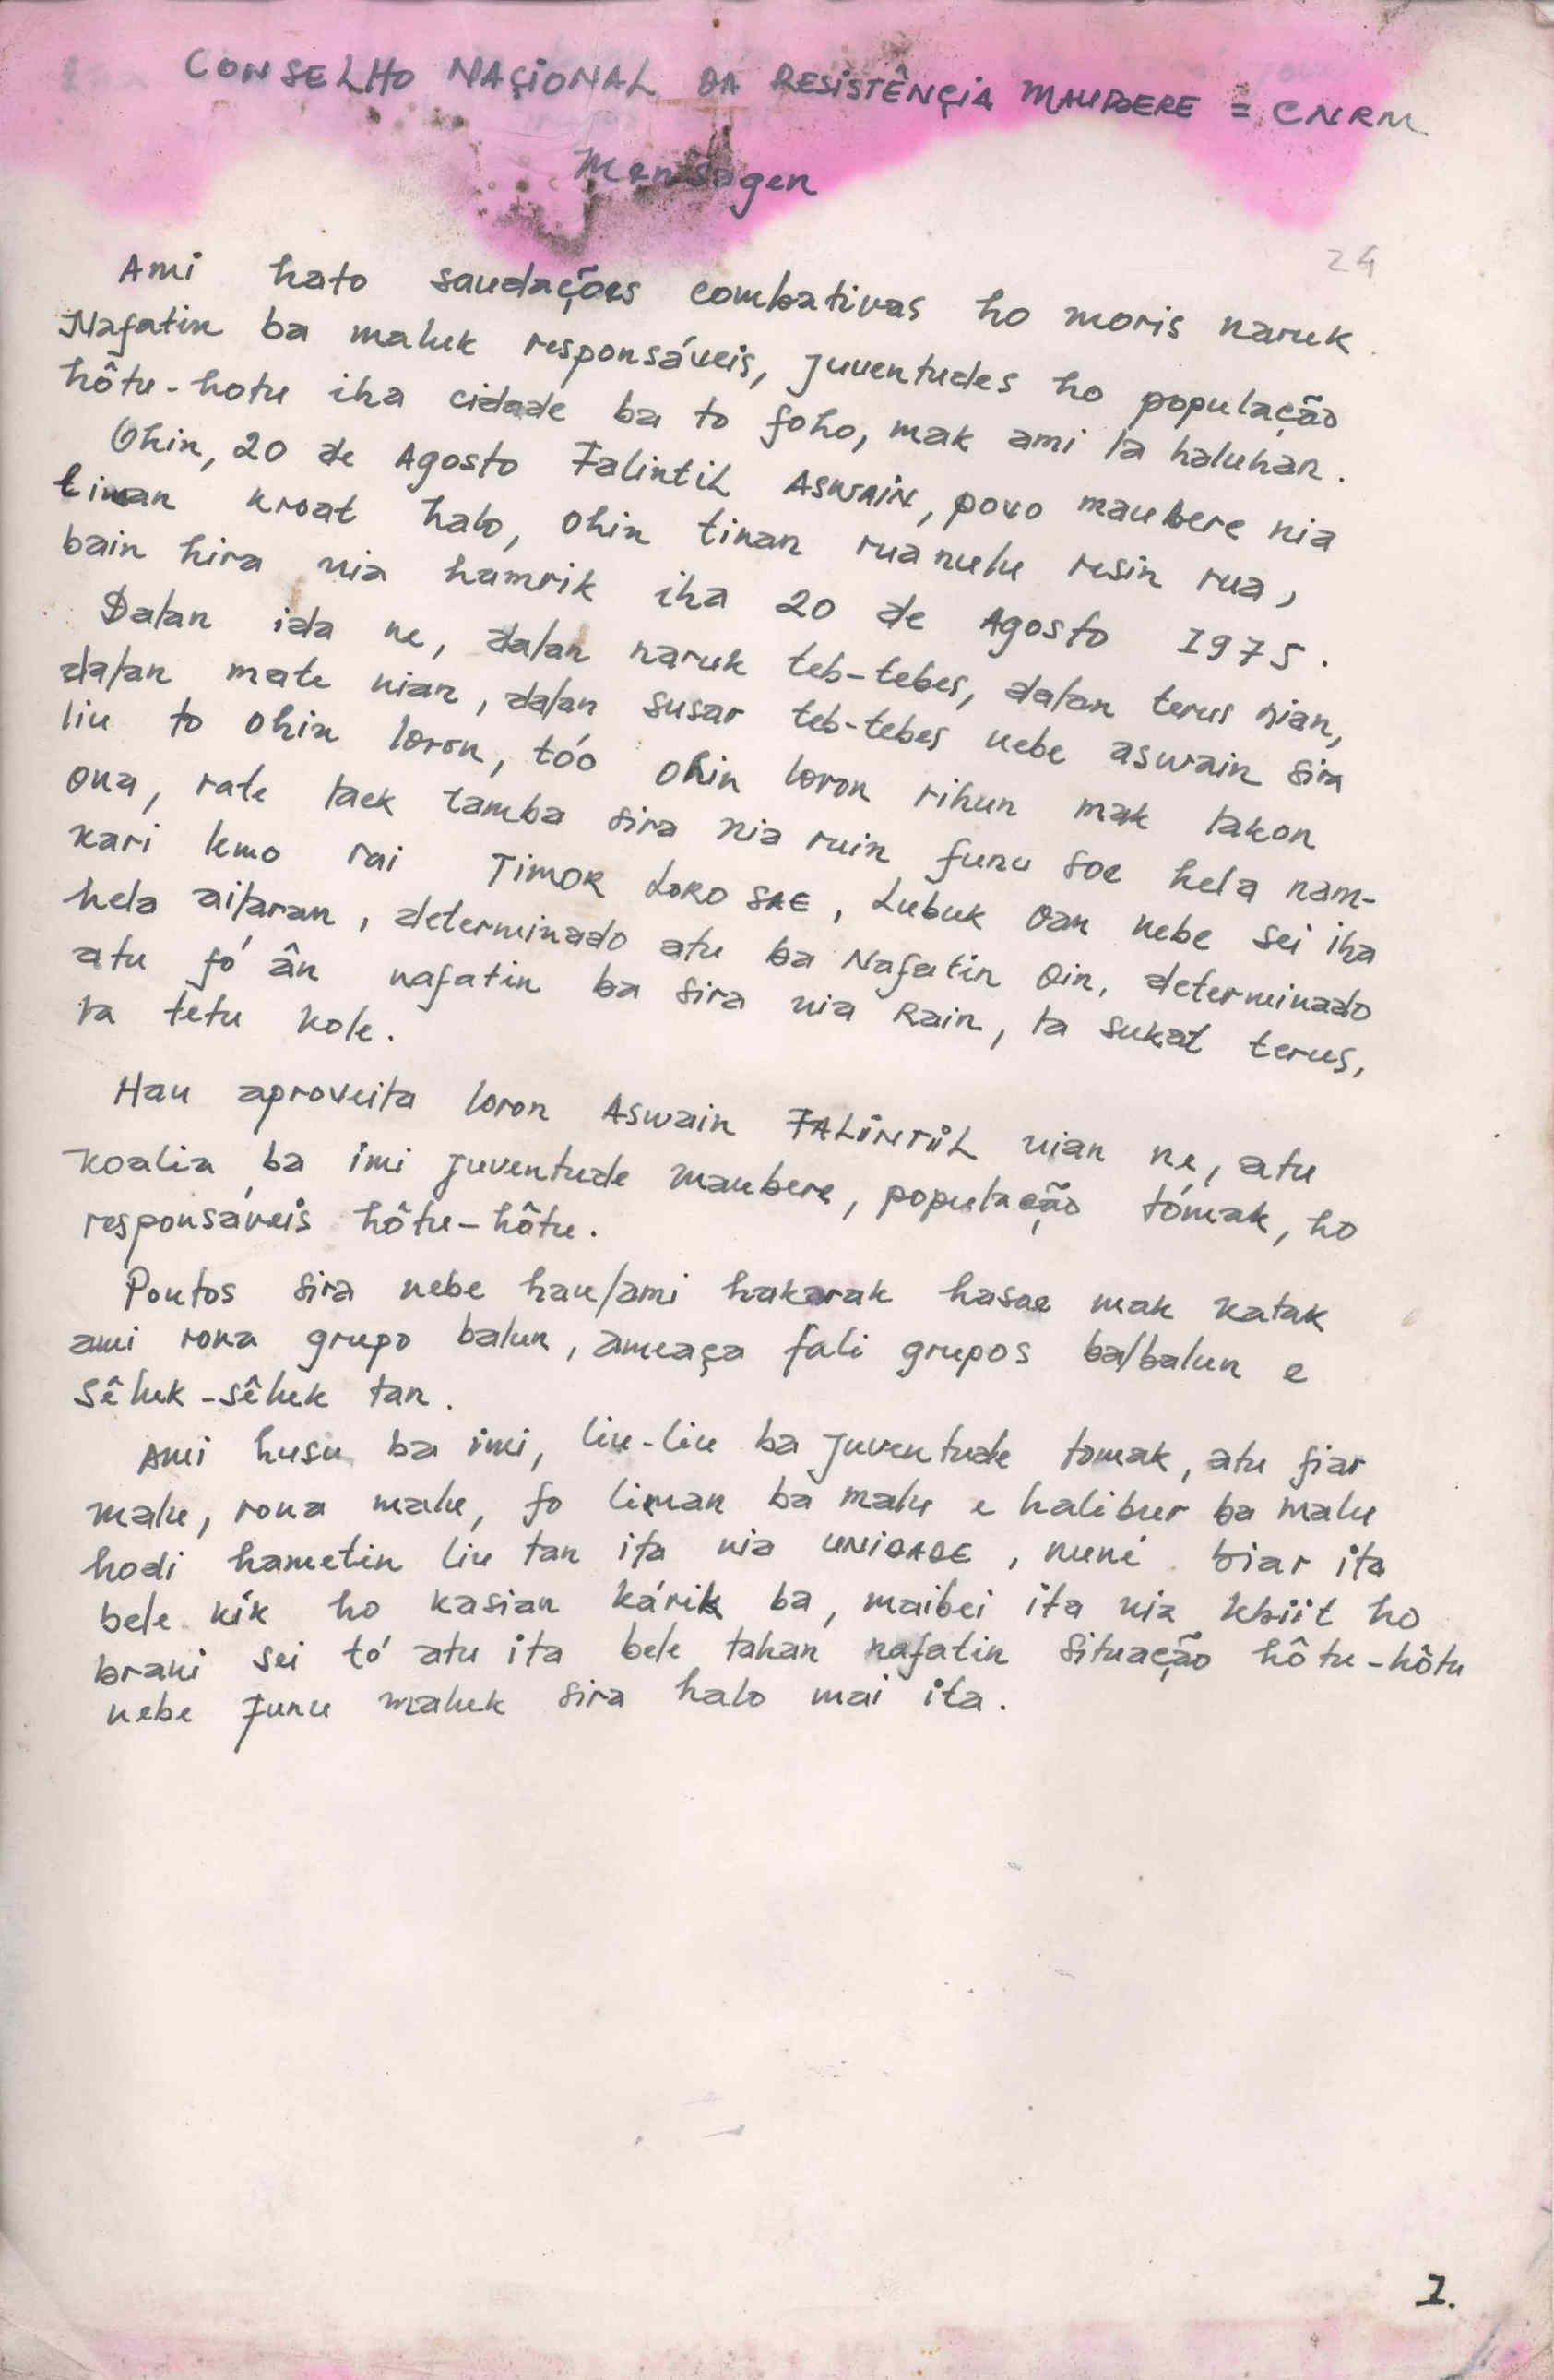 CONSELHO NAÇIONAL DA RESISTÊNÇIA MAUBERE = CNRM
Mensagen
24
Ami hato saudações combativas ho moris naruk
Nafatin ba maluk responsáveis, juventudes ho população
hôtu-hotu iha cidade ba to foho, mak ami la haluhan.
Ohin, 20 de Agosto Falintil Aswain, povo maubere nia
liman kroat halo, ohin tinan rua nulu resin rua,
bain hira nia hamrik iha 20 de Agosto 1975.
Dalan ida ne, dalan naruk teb-tebes, dalan terus nian,
dalan mate nian, dalan susar teb-tebes nebe aswain sira
liu to ohin loron, tóo ohin loron rihun mak lakon
ona, rate laek tamba sira nia ruin funu soe hela nam-
kari kmo rai TIMOR LORO SAE, Lubuk oan nebe sei iha
hela ailaran, determinado atu ba Nafatin Oin, determinado
atu fó ân nafatin ba sira nia Rain, la sukat terus,
la tetu kole.
Hau aproveita loron Aswain FALINTIL nian ne, atu
koalia ba imi juventude maubere, população tómak, ho
responsáveis hôtu-hôtu.
Pontos sira nebe hau/ami hakarak hasae mak katak
ami rona grupo balun, ameaça fali grupos bal balun e
sêluk-sêluk tan.
Ami husu ba imi, liu-liu ba juventude tomak, atu fiar
malu, rona malu, fo liman ba malu e halibur ba malu
hodi hametin liu tan ita nia UNIDADE, nuné biar ita
bele kík ho kasian kárik ba, maibei ita nia kbiit ho
brani sei tó atu ita bele tahan nafatin situação hôtu-hôtu
nebe funu maluk sira halo mai ita.
1.